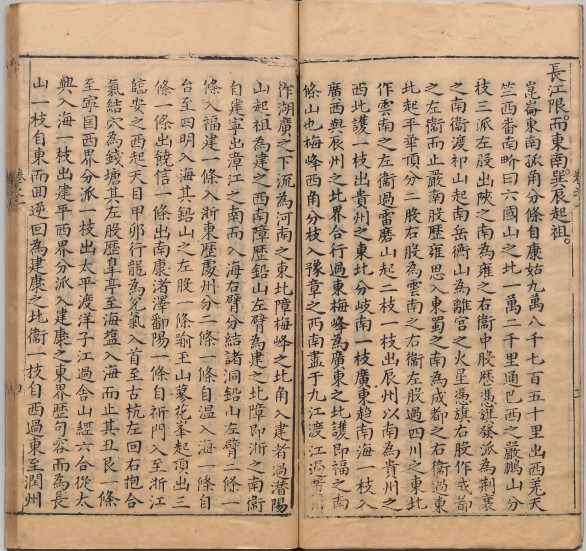 長江限而東南巽辰起祖
崑崙東南孤角分條自康姑九萬八千七百五十里出西羌天
竺西番南畍曰六國山之北一萬二千里通巴西之嚴鵬山分
枝三派左股出陝之南為雍之右衞中股歷馮進發派為荆襄
之南衞渡祁山起南岳衡山為離宮之火星馮旗右股作戎都
之左衞而止嚴南股歷雍思入東蜀之南為成都之右衞過東
北起平華頂分二股右股為雲南之右衞左股過四川之東北
作雲南之左衞過雷磨山起二枝一枝出辰州以南為貴州之
西北護一枝出貴州之東北分歧南一枝廣東趋南海一枝入
廣西與辰州之北界合行過東梅峰為廣東之北護即福之南
條山也梅峰西角分枝入豫章之西南盡于九江渡江過
作湖廣之下沉為河南之東北障梅峰之北角入建者過潛陽
山起祖為建之西南障歷鉛山左臂為建之北障即浙之南衞
自建寧出漳江之南而入海右臂分結諸洞鉛山左臂二條一
條入福建一條入浙東歷處州分二條一條自温入海一條自
台至四明入海其鉛山之左股一條踰玉山蓼花峯起頂出三
條一條出饒信一條出南康渚澤鄱陽一條自祈門入至浙江
臨安之西起天目甲卯行龍為兌氣入首至古杭左回右抱合
氣結穴為錢塘其左股歷皐亭至海盜入海而止其丑艮一條
至寧国西界分派一枝出太平渡洋子江過含山經六合從太
興入海一枝出建平西界分派入建康之東界歷句容而為長
山一枝自東而回逆回為建康之北衞一枝自西過東至潤州